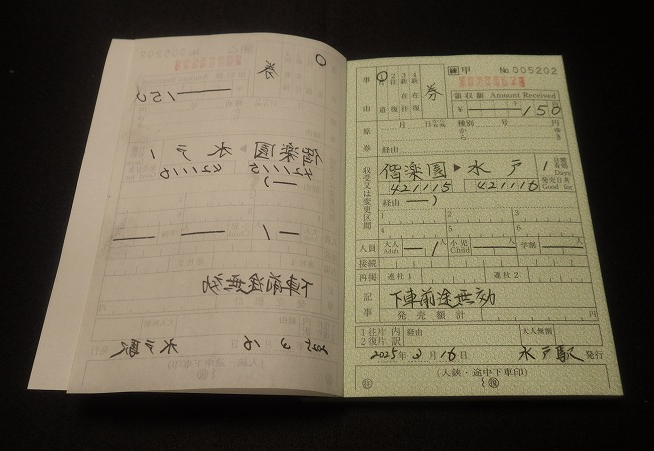 甲 № 005202
領収額 Amount Received
¥ 150 円
事由
原券
券
月 日から有効 種別 号 円
から ゆき
経由
収受又は変更区間
偕楽園 ▶ 水戸 1 日間有効 Days
421115 421116 発売日共 Good for
経由 ―)
1 2 3
4 5 6
人員 大人 Adult 1 人 小児 Child 人 学割 人
接続
再掲 連社1 連社2
記事
下車前途無効
発売額計 円
1往片 内 経由 大人無割
2復片 訳
2025年 3月 16日 水戸駅 発行
(入鋏・途中下車印)